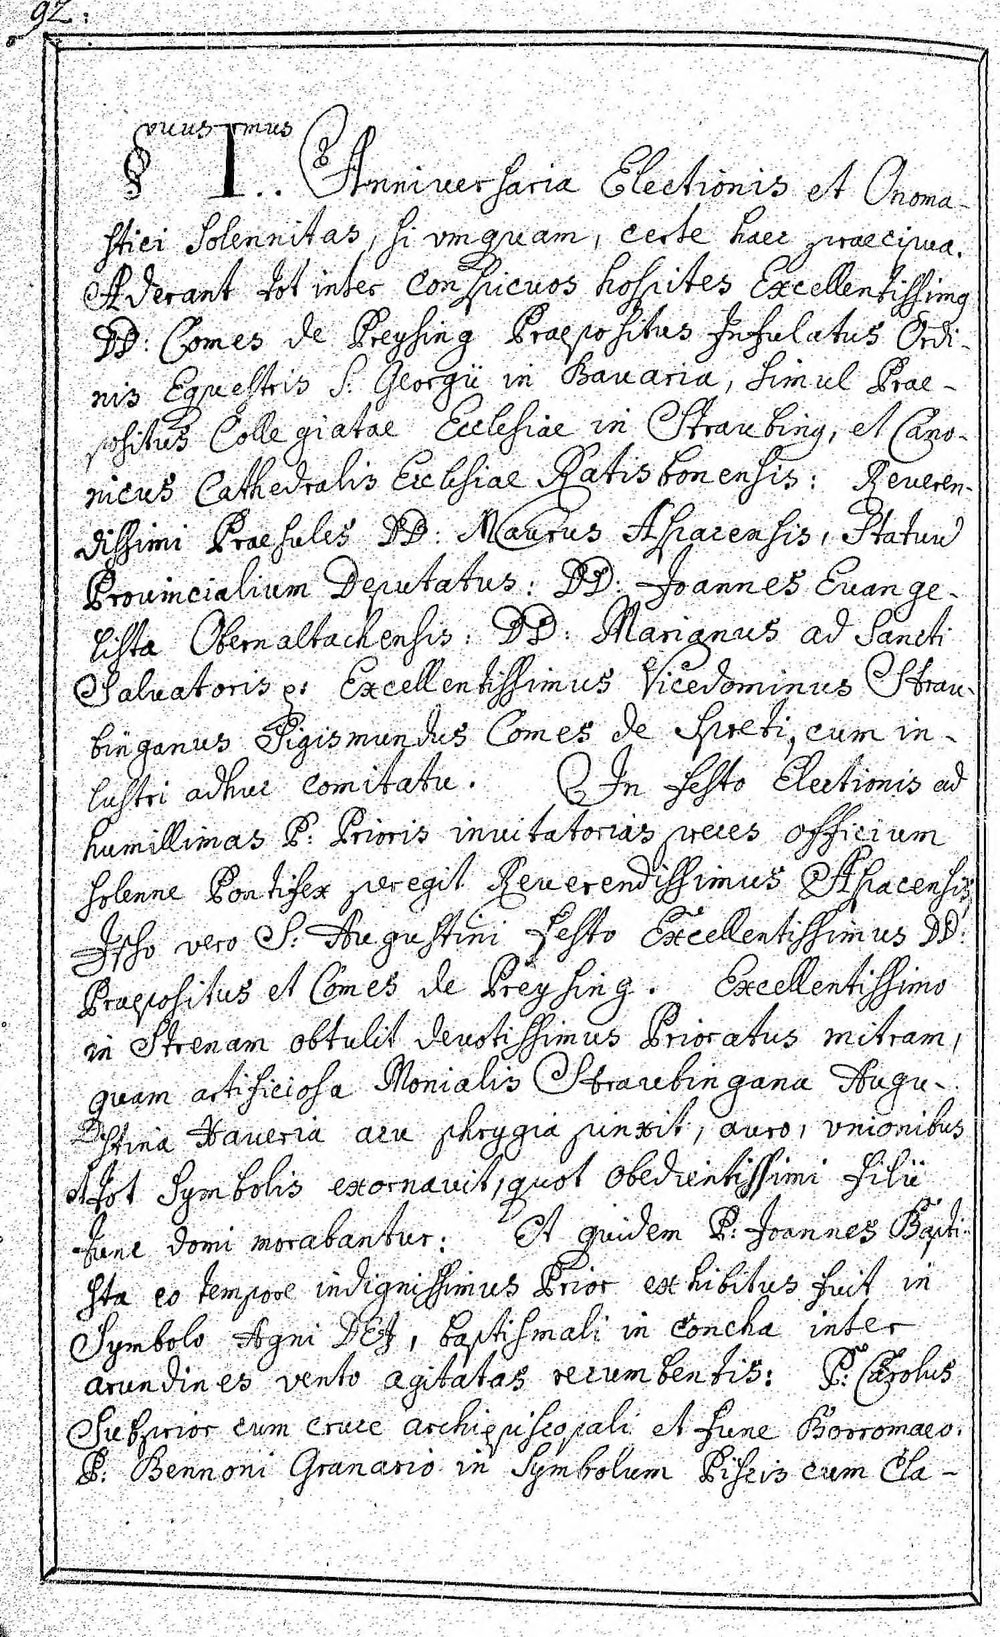 92.
§vuus Imus.. Anniversaria Electionis et Onoma-
stici solennitas, si vnquam, certe haec praecipua.
Aderant tot inter conspicuos hospites Excellentissimg
DD: Comes de Preysing Praepositus Infulatus Ordi-
nis Equestris S: Georgii in Bauaria, simul Prae-
positus Collegiatae Ecclesiae in Straubing, et Cano-
nicus Cathedralis Ecclesiae Ratisbonensis: Reueren-
dissimi Praesules DD: Maurus Aspacensis, Statuu
Prouincialium Deputatus: DD: Joannes Euange-
lista Obernaltachensis: DD: Marianus ad Sancti
Saluatoris et Excellentissimus Vicedominus Strau-
binganus Sigismundus Comes de Spreti, cum in-
lustri adhuc comitatu. In festo Electionis ad
humillimas P: Prioris inuitatorias preces officium
solenne Pontifex peregit Reuerendissimus Aspacensis,
Ipso vero S: Augustini festo Excellentissimus DD:
Praepositus et Comes de Preysing. Excellentissimo
in Strenam obtulit deuotissimus Prioratus mitram,
quam artificiosa Monialis Straubingana Augu-
stina Xaueria acu phrygia pinxit, auro, vnionibus
et tot Symbolis exornauit, quot obedientissimi filii
tunc domi morabantur: Et quidem P: Joannes Bapti-
sta eo tempore indignissimus Prior exhibitus fuit in
Symbolo Agni DEI, baptismali in concha inter
arundines vento agitatas recumbentis: P: Carolus
Subprior cum cruce archiepiscopali et fune Borromaeo.
P: Bennoni Granario in Symbolum Piscis cum Cla-